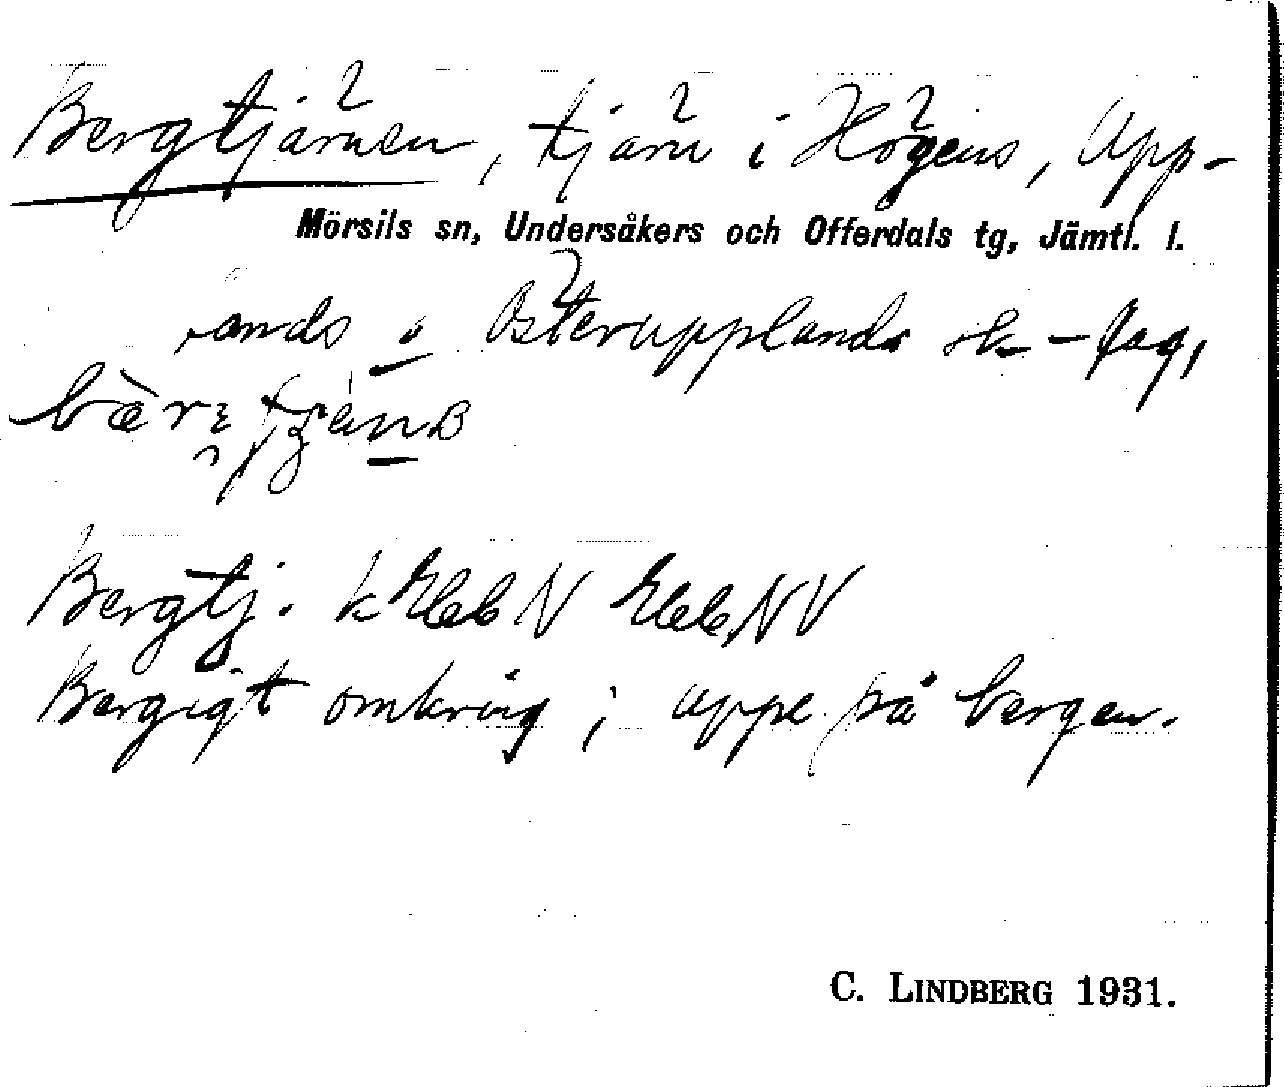 Bergtjärnen, tjärn i Högens, Upp-
Mörsils sn, Undersåkers och Offerdals tg, Jämtl. l.
lands o Österupplands sk-lag,
Bergtj. k N NV
Bergigt omkring; uppe på bergen.
C. LINDBERG 1931.